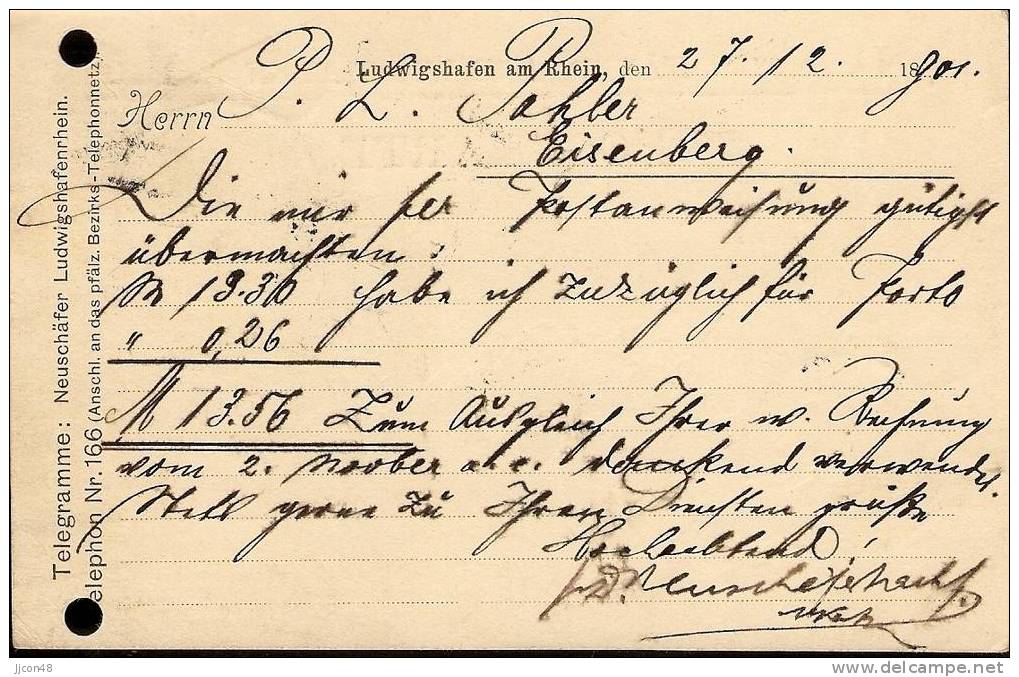 Ludwigshafen am Rhein, den 27. 12. 18901.
Herrn P. L. Pohler
Eisenberg.
Die mir per Postanweisung gütigst
übermachten:
M 13.30 habe ich zuzüglich für Porto
" 0,26
M 13.56 zum Ausgleich Ihrer w. Rechnung
vom 2. a. c. dankend verwendet.
Stets gerne zu Ihren Diensten grüße
Hochachtend!
Telegramme: Neuschäfer Ludwigshafenrhein.
elephon Nr. 166 (Anschl. an das pfälz. Bezirks-Telephonnetz).
jjcon48
www.delcampe.net